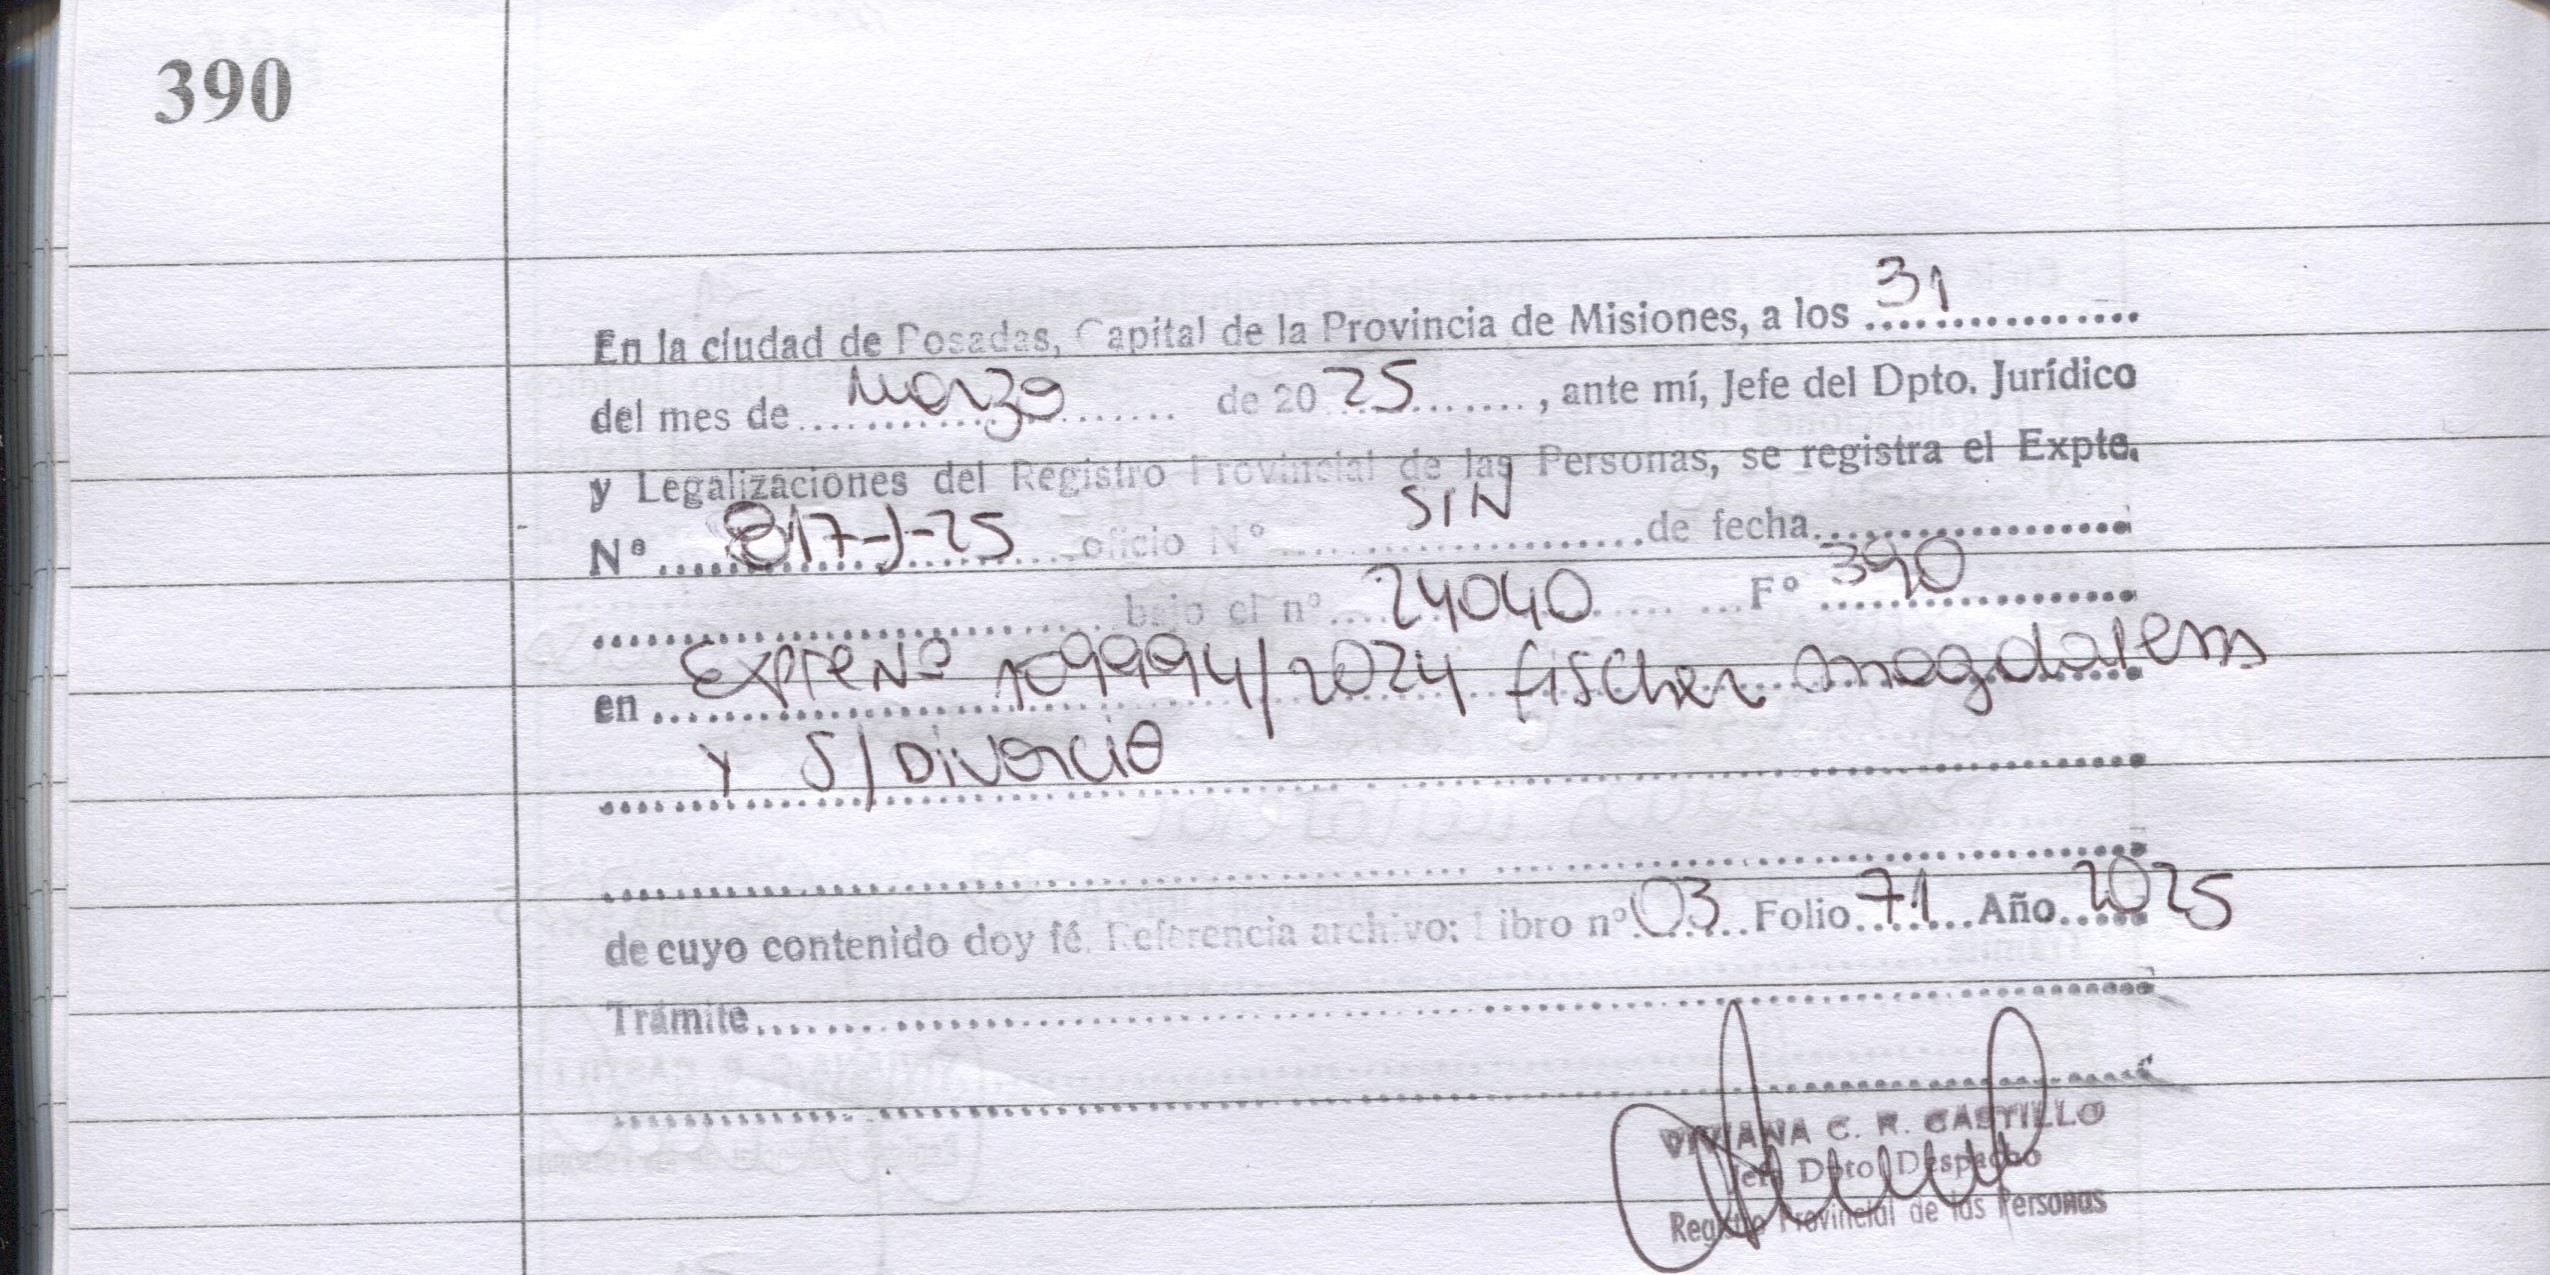 390
En la ciudad de Posadas, Capital de la Provincia de Misiones, a los 31
del mes de marzo de 2025, ante mí, Jefe del Dpto. Jurídico
y Legalizaciones del Registro Provincial de las Personas, se registra el Expte.
Nº 817-J-25 oficio Nº S/N de fecha
bajo el nº 24040 Fº 390
en Expte Nº 109994/2024 Fischer Magdalena
y S/Divorcio
de cuyo contenido doy fé. Referencia archivo: Libro nº 03 Folio 71 Año 2025
Trámite
VIVIANA C. R. CASTILLO
Jefe Dpto Despacho
Registro Provincial de las Personas